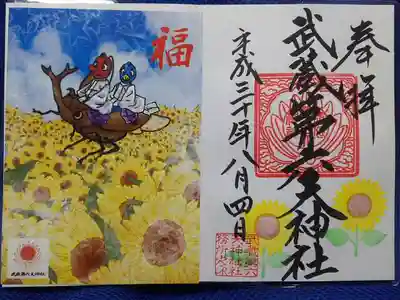 福
奉拝
武蔵第六天神社
平成三十年八月四日